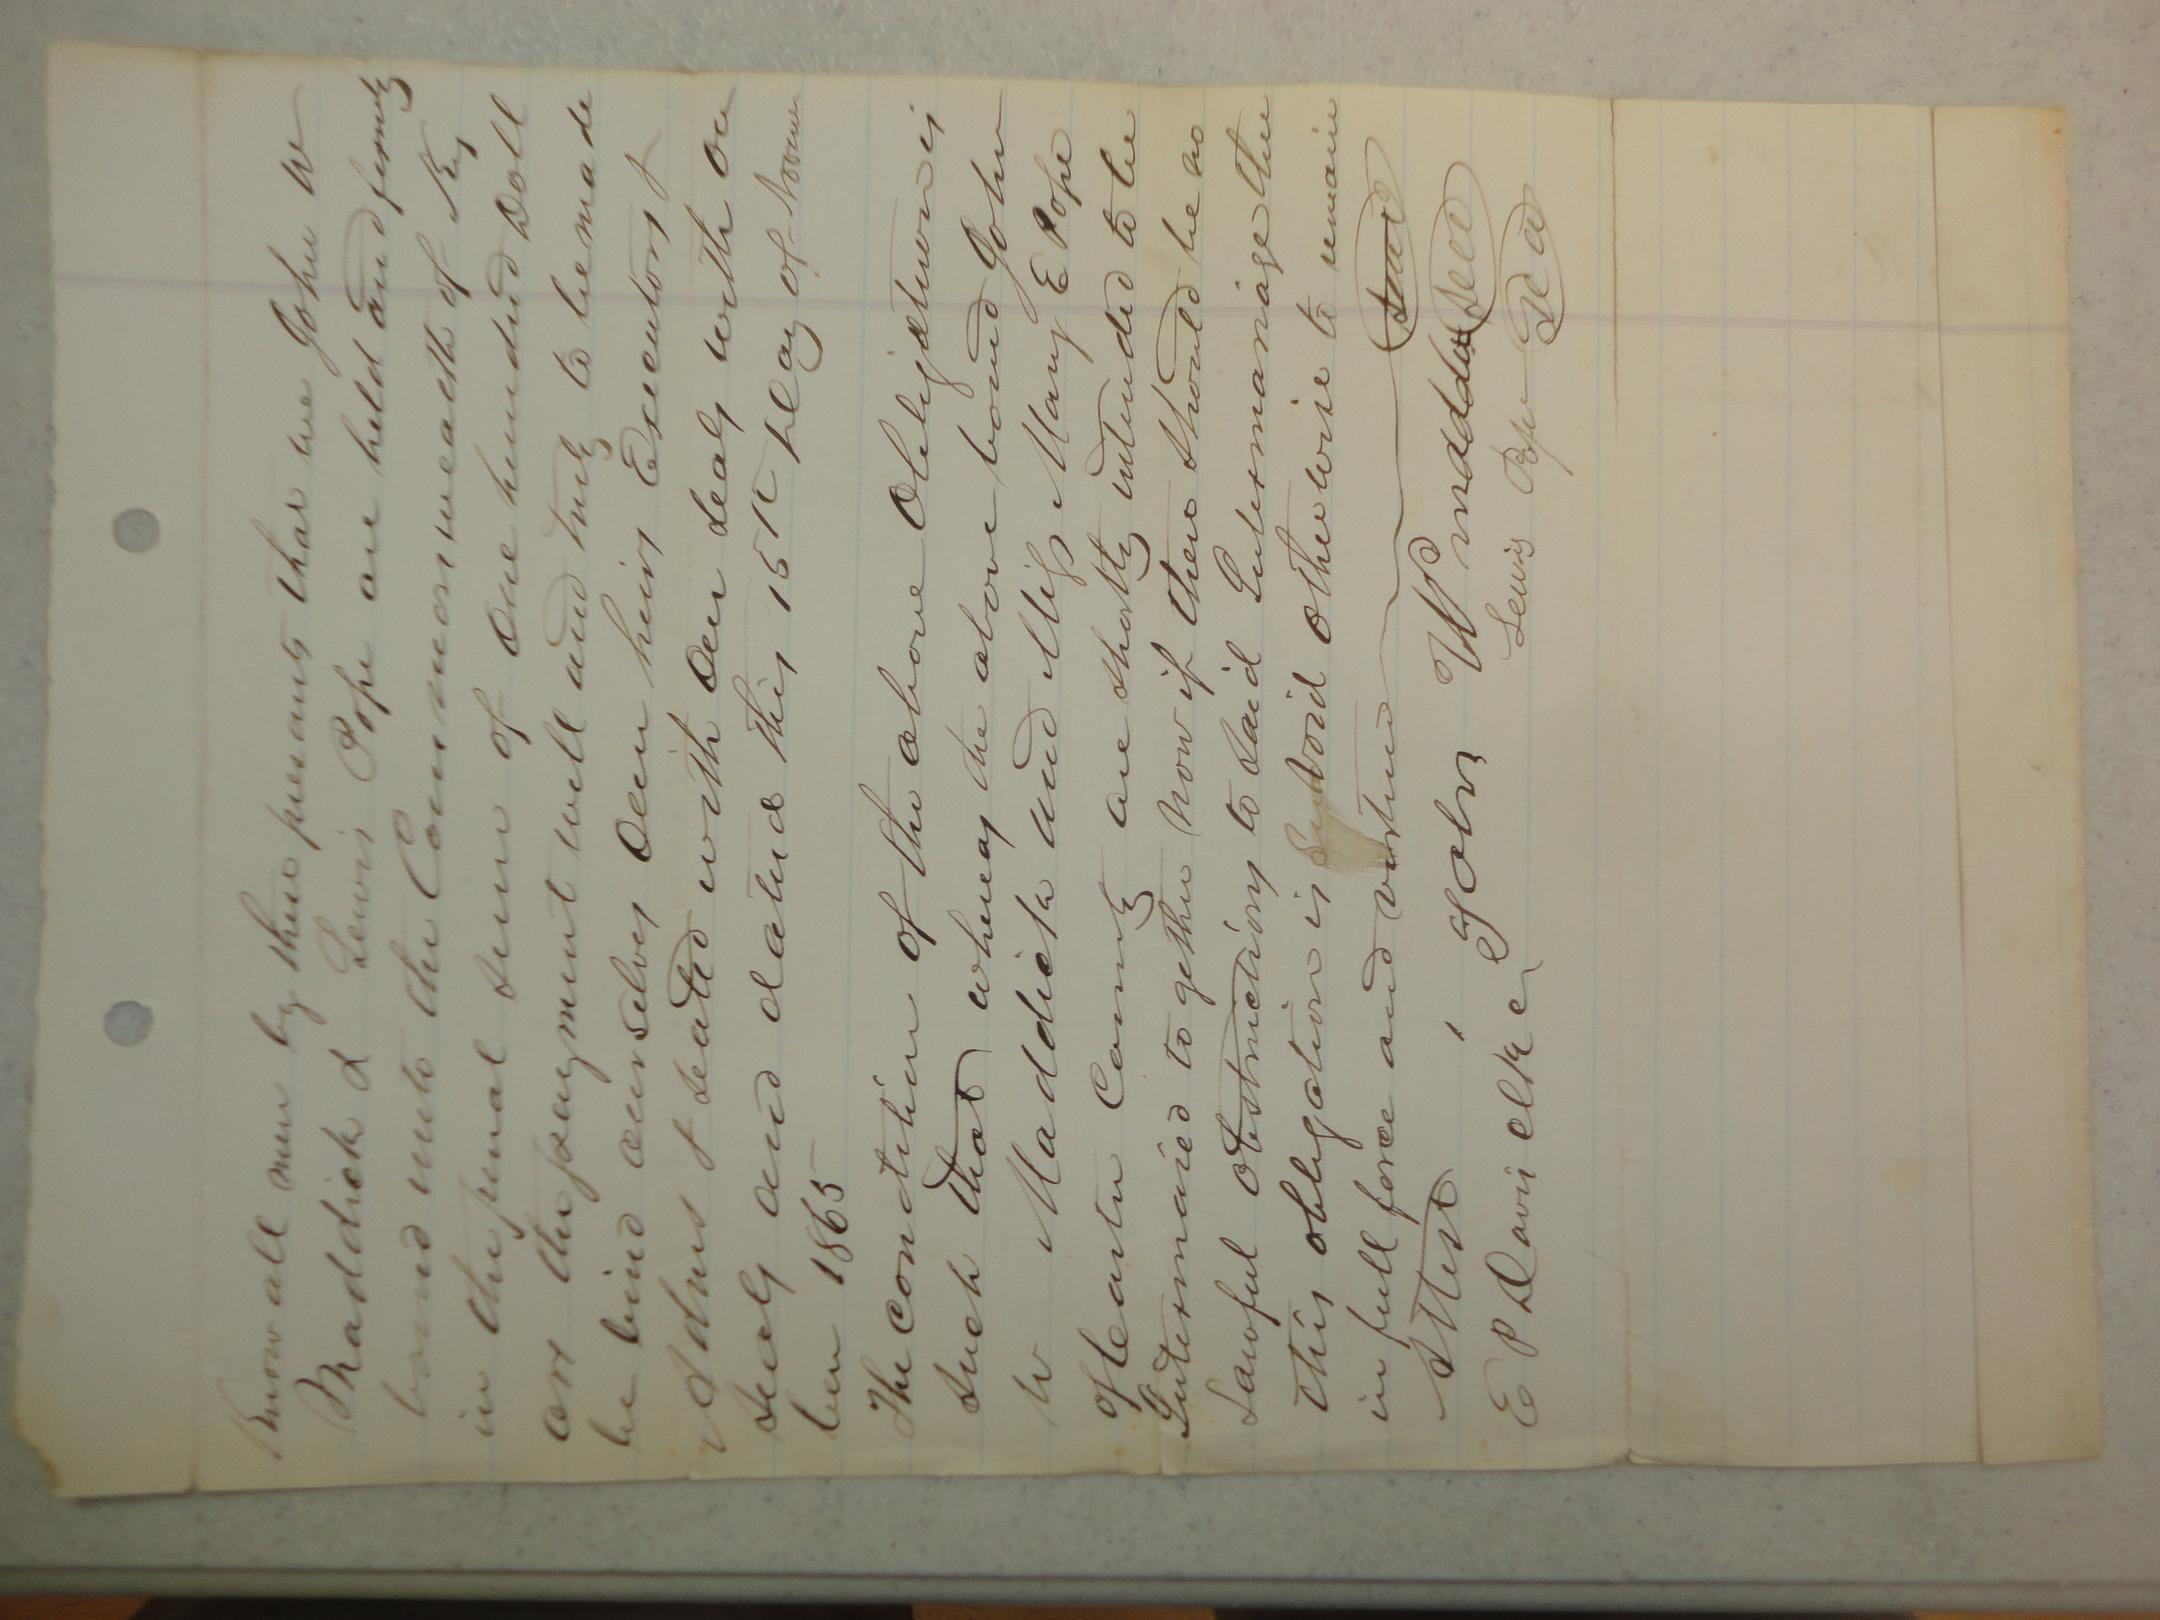 Know all men by these presants that we John W
Maddick & Lewis Pope are held and firmly
bound unto the Commonweatth of Ky
in the penal sum of One hundred Doll
ars the payment well and truly to be made
be bind ourselves Our heirs Executors &
Adms & sealed with Our seals with Our
seals and dated this 15th Day of Novem
ber 1865
The condition of the above Obligation is
such that whereas the above bound John
W Maddick and Miss Mary E Pope
of County are shortly intended to be
Intermaried to gether Now if there should be no
Lawful obstructions to said Intermariage then
this obligation is void otherwise to remain
in full force and virtue seal
Attest John W maddox seal
E P Davis clk Lewis Pope seal